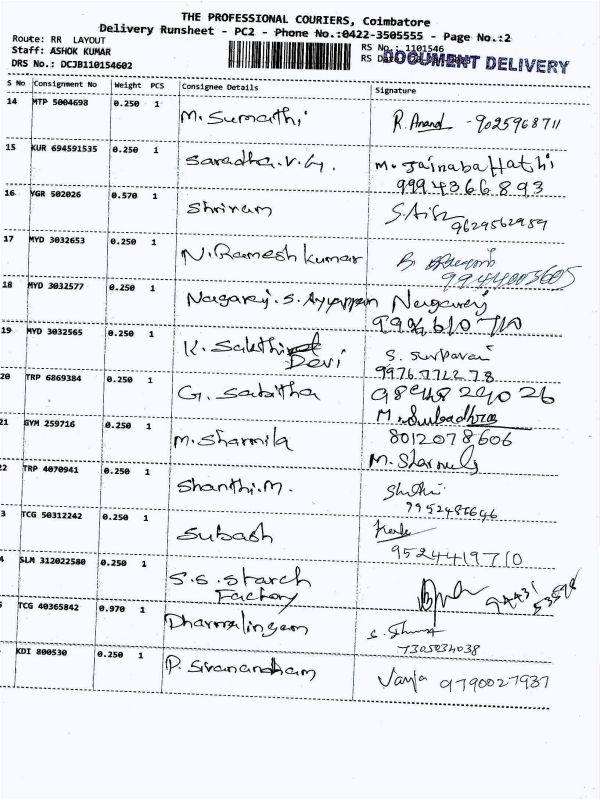 THE PROFESSIONAL COURIERS, Coimbatore
Delivery Runsheet - PC2 - Phone No.:0422-3505555 - Page No.:2
Route: RR LAYOUT
Staff: ASHOK KUMAR
DRS No.: DCJB110154602
RS No.: 1101546
RS
DOCUMENT DELIVERY
S No Consignment No Weight PCS Consignee Details Signature
14 MTP 5004698 0.250 1 M. Sumathi R. Anand - 9025968711
15 KUR 694591535 0.250 1 Saradha.V.G. M. Jainaba Hathi
9994366893
16 YGR 502026 0.570 1 Shriram
9629562959
17 MYD 3032653 0.250 1 N. Ramesh kumar B.
9944003605
18 MYD 3032577 0.250 1 Nagaraj. S. Ayyappan Nagaraj
19 MYD 3032565 0.250 1 K. Sakthi
Devi S.
20 TRP 6869384 0.250 1 G. Sabitha
M. Subadhra
21 GYM 259716 0.250 1 M. Sharmila 8012078606
M.
2 TRP 4070941 0.250 1 Shanthi.M.
9952486646
3 TCG 50312242 0.250 1 Subash
9524419710
4 SLM 312022580 0.250 1 S.S. Starch
Factory
TCG 40365842 0.970 1 Dharmalingam
7305034038
KDI 800530 0.250 1 P. Sivanandham Vanja 9790027937